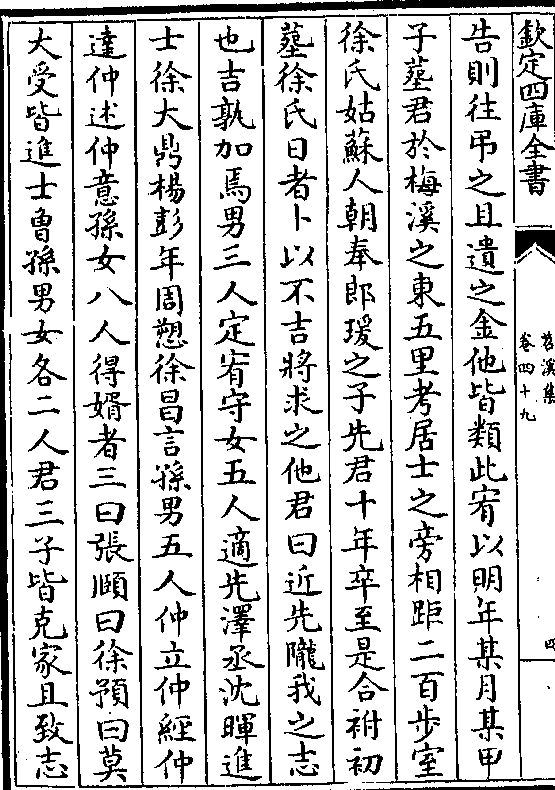 欽定四庫全書
苕溪集
卷四十九
四
告則往弔之且遺之金他皆類此宥以明年某月某甲
子塟君於梅溪之東五里考居士之旁相距二百步室
徐氏姑蘇人朝奉郎瑗之子先君十年卒至是合祔初
塟徐氏日者卜以不吉將求之他君曰近先隴我之志
也吉孰加焉男三人定宥守女五人適先澤丞沈暉進
士徐大鼎楊彭年周愬徐昌言孫男五人仲立仲經仲
達仲述仲意孫女八人得婿者三曰張頤曰徐預曰莫
大受皆進士曾孫男女各二人君三子皆克家且致志